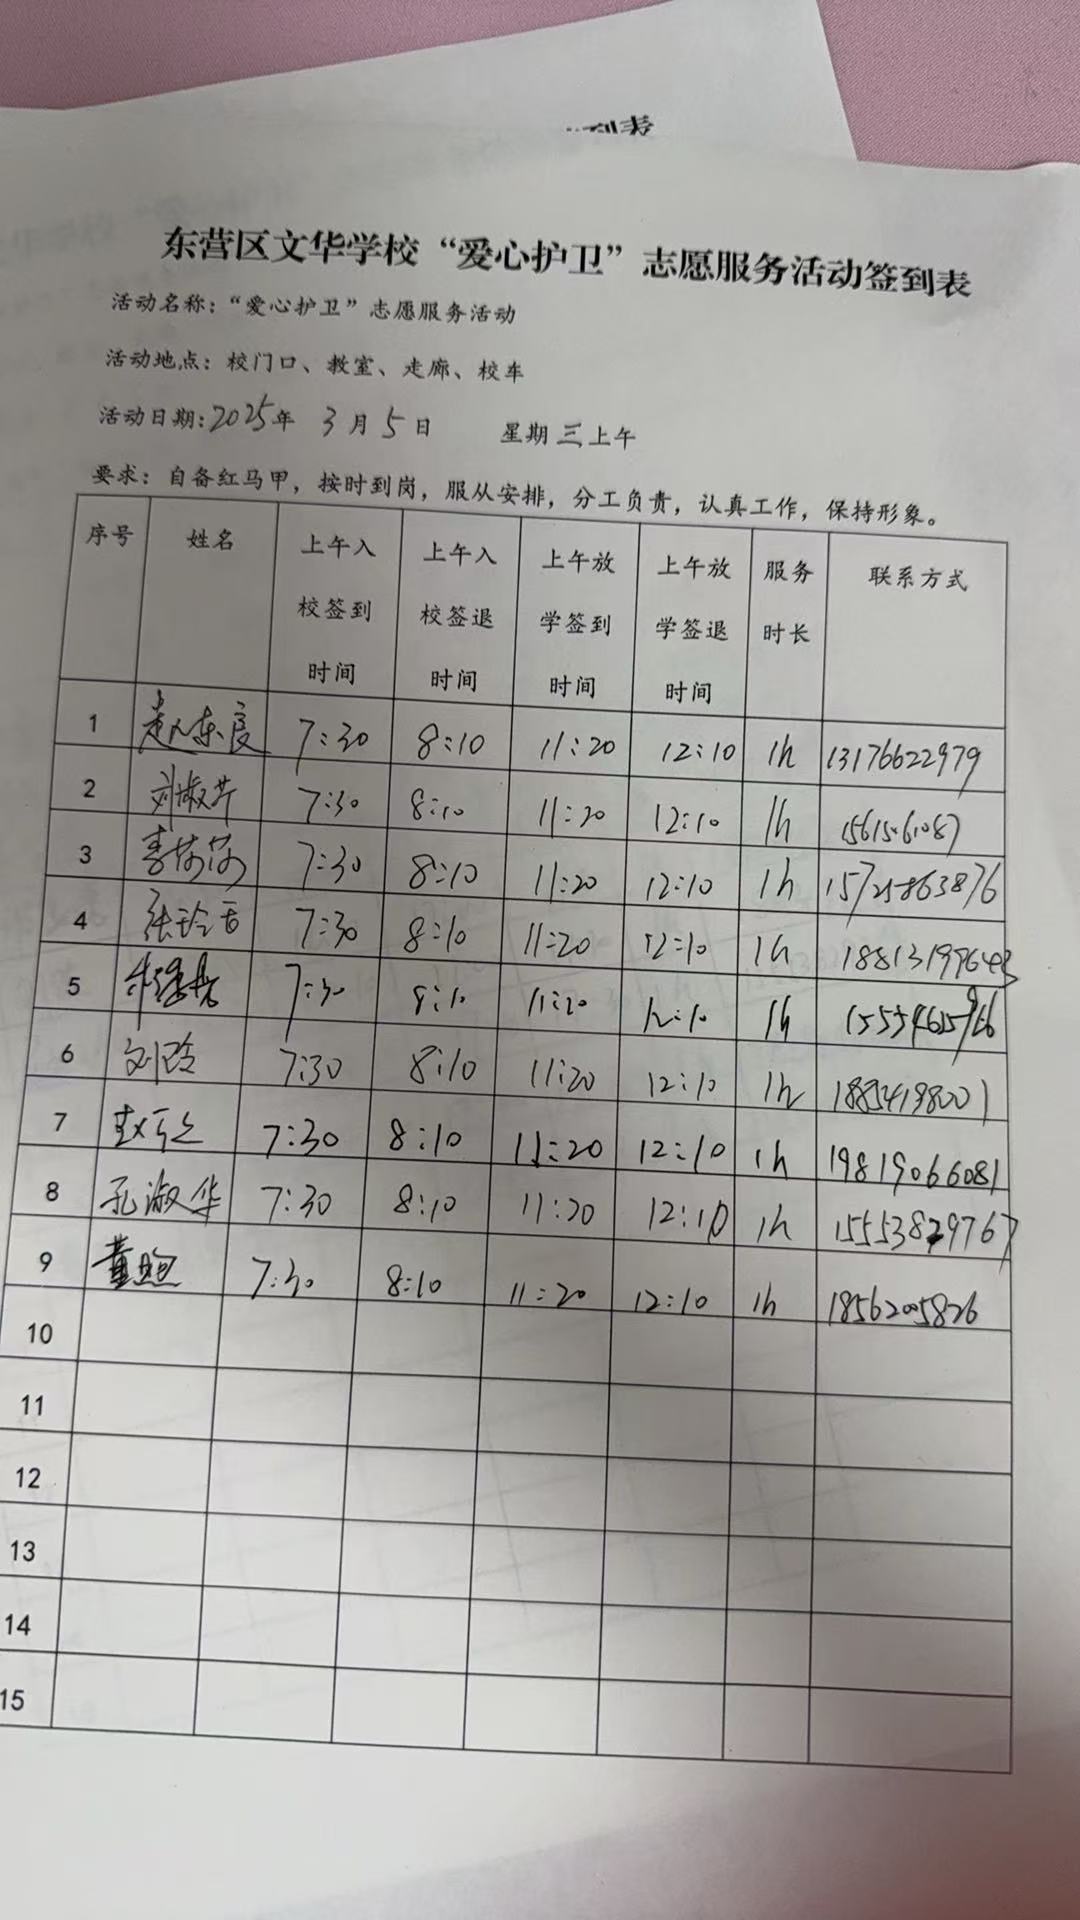 到表
东营区文华学校“爱心护卫”志愿服务活动签到表
活动名称：“爱心护卫”志愿服务活动
活动地点：校门口、教室、走廊、校车
活动日期：2025年 3月5日 星期三上午
要求：自备红马甲，按时到岗，服从安排，分工负责，认真工作，保持形象。
序号 姓名 上午入校签到时间 上午入校签退时间 上午放学签到时间 上午放学签退时间 服务时长 联系方式
1 赵东良 7:30 8:10 11:20 12:10 1h 13176622979
2 刘淑芹 7:30 8:10 11:20 12:10 1h
3 李莎莎 7:30 8:10 11:20 12:10 1h 15725863876
4 7:30 8:10 11:20 12:10 1h
5 7:30 8:10 11:20 12:10 1h
6 刘玲 7:30 8:10 11:20 12:10 1h 18854198001
7 7:30 8:10 11:20 12:10 1h 19819066081
8 孔淑华 7:30 8:10 11:20 12:10 1h 15553829767
9 7:30 8:10 11:20 12:10 1h 18562005826
10
11
12
13
14
15